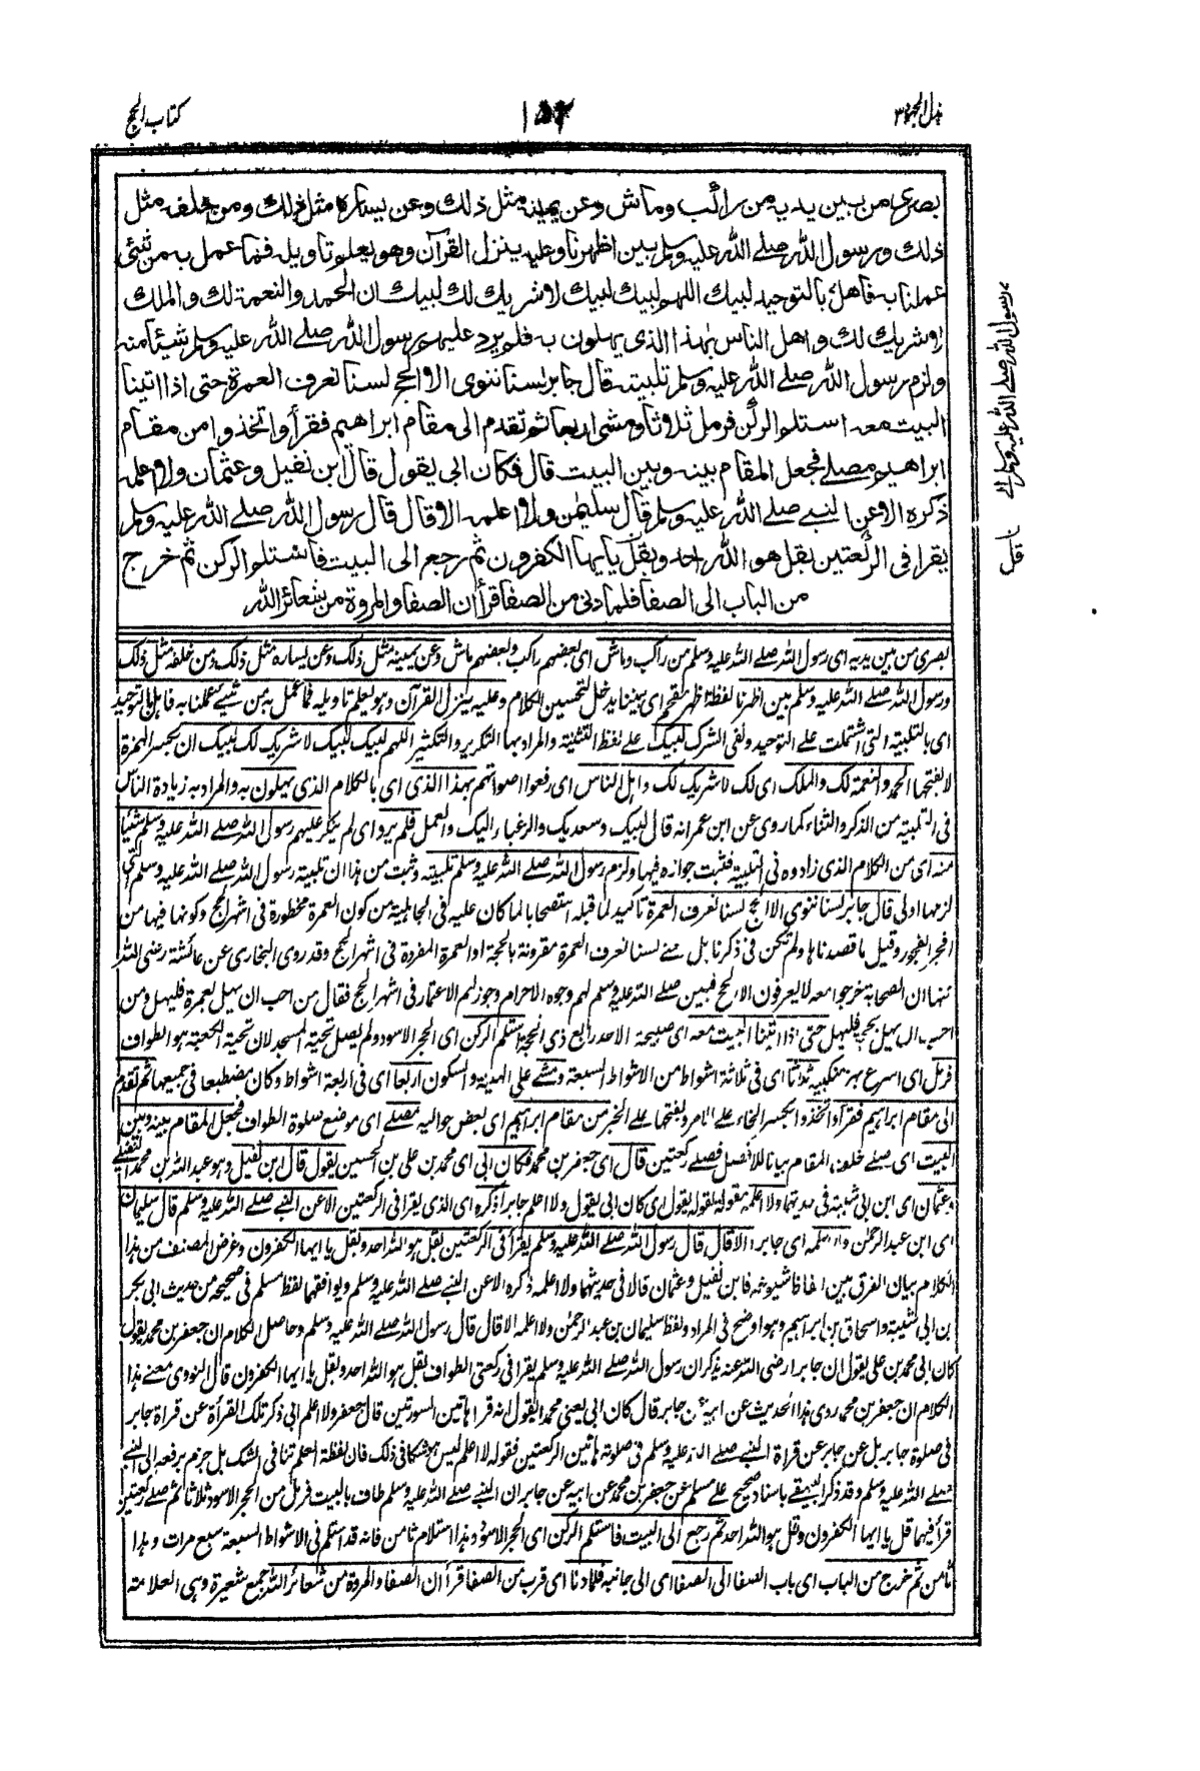 بذل المجهود ٣
١٥٢
كتاب الحج
بصرى من بين يديه من راكب وماش وعن يمينه مثل ذلك وعن يساره مثل ذلك ومن خلفه مثل
ذلك ورسول الله صلے الله عليه وسلم بين اظهرنا وعليه ينزل القرآن وهو يعلم تاويله فما عمل به من شئ
عملنا به فاهل بالتوحيد لبيك اللهم لبيك لبيك لا شريك لك لبيك ان الحمد والنعمة لك والملك
لا شريك لك واهل الناس بهذا الذى يهلون به فلم يرد عليهم رسول الله صلے الله عليه وسلم شيئا منه
ولزم رسول الله صلے الله عليه وسلم تلبيته قال جابر لسنا ننوى الا الحج لسنا نعرف العمرة حتى اذا اتينا
البيت معه استلم الركن فرمل ثلاثا ومشى اربعا ثم تقدم الى مقام ابراهيم فقرأ واتخذوا من مقام
ابراهيم مصلے فجعل المقام بينه وبين البيت قال فكان ابى يقول قال ابن نفيل وعثمان ولا اعلمه
ذكره الا عن النبے صلے الله عليه وسلم قال سليمن ولا اعلمه الا قال قال رسول الله صلے الله عليه وسلم
يقرأ فى الركعتين بقل هو الله احد وبقل يايها الكفرون ثم رجع الى البيت فاستلم الركن ثم خرج
من الباب الى الصفا فلما دنى من الصفا قرأ ان الصفا والمروة من شعائر الله
رسول الله صلے الله عليه وسلم الے
بصرى من بين يديه اى رسول الله صلے الله عليه وسلم من راكب وماش اى بعضهم راكب وبعضهم ماش وعن يمينه مثل ذلك وعن يساره مثل ذلك ومن خلفه مثل ذلك
ورسول الله صلے الله عليه وسلم بين اظهرنا لفظة اظهر مقحم اى بيننا يدخل لتحسين الكلام وعليه ينزل القرآن وهو يعلم تاويله فما عمل به من شيے عملنا به فاهل بالتوحيد
اى بالتلبية التى اشتملت على التوحيد ونفى الشرك لبيك على لفظ التثنية والمراد بها التكرير والتكثير اللهم لبيك لبيك لا شريك لك لبيك ان بكسر الهمزة
لا بفتحها الحمد والنعمة لك والملك اى لك لا شريك لك واهل الناس اى رفعوا اصواتهم بهذا الذى اى بالكلام الذى يهلون به والمراد به زيادة الناس
فى التلبية من الذكر والثناء كما روى عن ابن عمر انه قال لبيك وسعديك والرغباء اليك والعمل فلم يرد اى لم ينكر عليهم رسول الله صلے الله عليه وسلم شيئا
منه اى من الكلام الذى زادوه فى التلبية فثبت جوازه فيها ولزم رسول الله صلے الله عليه وسلم تلبيته وثبت من هذا ان تلبية رسول الله صلے الله عليه وسلم التى
لزمها اولى قال جابر لسنا ننوى الا الحج لسنا نعرف العمرة تاكيد لما قبله استصحابا لما كان عليه فى الجاهلية من كون العمرة محظورة فى اشهر الحج وكونها فيها من
افجر الفجور وقيل ما قصدناها ولم تكن فى ذكرنا بل معنے لسنا نعرف العمرة مقرونة بالحجة او العمرة المفردة فى اشهر الحج وقد روى البخارى عن عائشة رضى الله
عنها ان الصحابة خرجوا معه لا يعرفون الا الحج فبين صلے الله عليه وسلم لهم وجوه الاحرام وجوز لهم الاعتمار فى اشهر الحج فقال من احب ان يهل بعمرة فليهل ومن
احب ان يهل بحج فليهل حتى اذا اتينا البيت معه اى صبيحة الاحد رابع ذى الحجة استلم الركن اى الحجر الاسود ولم يصل تحية المسجد لان تحية الكعبة هو الطواف
فرمل اى اسرع بهز منكبيه ثلاثا اى فى ثلاثة اشواط من الاشواط السبعة ومشے على الهينة والسكون اربعا اى فى اربعة اشواط وكان مضطبعا فى جميعها ثم تقدم
الى مقام ابراهيم فقرأ واتخذوا بكسر الخاء على الامر وبفتحها على الخبر من مقام ابراهيم اى بعض حواليه مصلے اى موضع صلوة الطواف فجعل المقام بينه وبين
البيت اى صلے خلف المقام بيانا للافضل فصلے ركعتين قال اى جعفر بن محمد فكان ابى اى محمد بن على بن الحسين يقول قال ابن نفيل وهو عبد الله بن محمد النفيلے
وعثمان اى ابن ابى شيبة فى حديثهما ولا اعلمه مقولة لقوله يقول اى كان ابى يقول ولا اعلم جابرا ذكره اى الذى يقرأ فى الركعتين الا عن النبے صلے الله عليه وسلم قال سليمان
اى ابن عبد الرحمٰن ولا اعلمه اى جابرا الا قال قال رسول الله صلے الله عليه وسلم يقرأ فى الركعتين بقل هو الله احد وبقل يا ايها الكفرون وغرض المصنف من هذا
الكلام بيان الفرق بين الفاظ شيوخه فابن نفيل وعثمان قالا فى حديثهما ولا اعلمه ذكره الا عن النبے صلے الله عليه وسلم ويوافقهما لفظ مسلم فى صحيحه من حديث ابى بكر
بن ابى شيبة واسحاق بن ابراهيم وهو اوضح فى المراد ولفظ سليمان بن عبد الرحمٰن ولا اعلمه الا قال قال رسول الله صلے الله عليه وسلم وحاصل الكلام ان جعفر بن محمد يقول
كان ابى محمد بن على يقول ان جابرا رضى الله عنه يذكر ان رسول الله صلے الله عليه وسلم يقرأ فى ركعتى الطواف بقل هو الله احد وبقل يا ايها الكفرون قال النووى معنے هذا
الكلام ان جعفر بن محمد روى هذا الحديث عن ابيه عن جابر قال كان ابى يعنى محمدا يقول انه قرأ هاتين السورتين قال جعفر ولا اعلم ابى ذكر تلك القرأة عن قراة جابر
فى صلوة جابر بل عن جابر عن قراة النبے صلے الله عليه وسلم فى صلوة هاتين الركعتين فقوله لا اعلم ليس هو شكا فى ذلك فان لفظة العلم تنافى الشك بل جزم برفعه الى النبے
صلے الله عليه وسلم وقد ذكر البيهقے باسناد صحيح على مسلم عن جعفر بن محمد عن ابيه عن جابر ان النبے صلے الله عليه وسلم طاف بالبيت فرمل من الحجر الاسود ثلاثا ثم صلے ركعتين
قرأ فيهما قل يا ايها الكفرون وقل هو الله احد ثم رجع الى البيت فاستلم الركن اى الحجر الاسود وهذا استلام ثامن فانه قد استلم فى الاشواط السبعة سبع مرات وهذا
ثامن ثم خرج من الباب اى باب الصفا الى الصفا اى الى جانبه فلما دنا اى قرب من الصفا قرأ ان الصفا والمروة من شعائر الله جمع شعيرة وهى العلامة